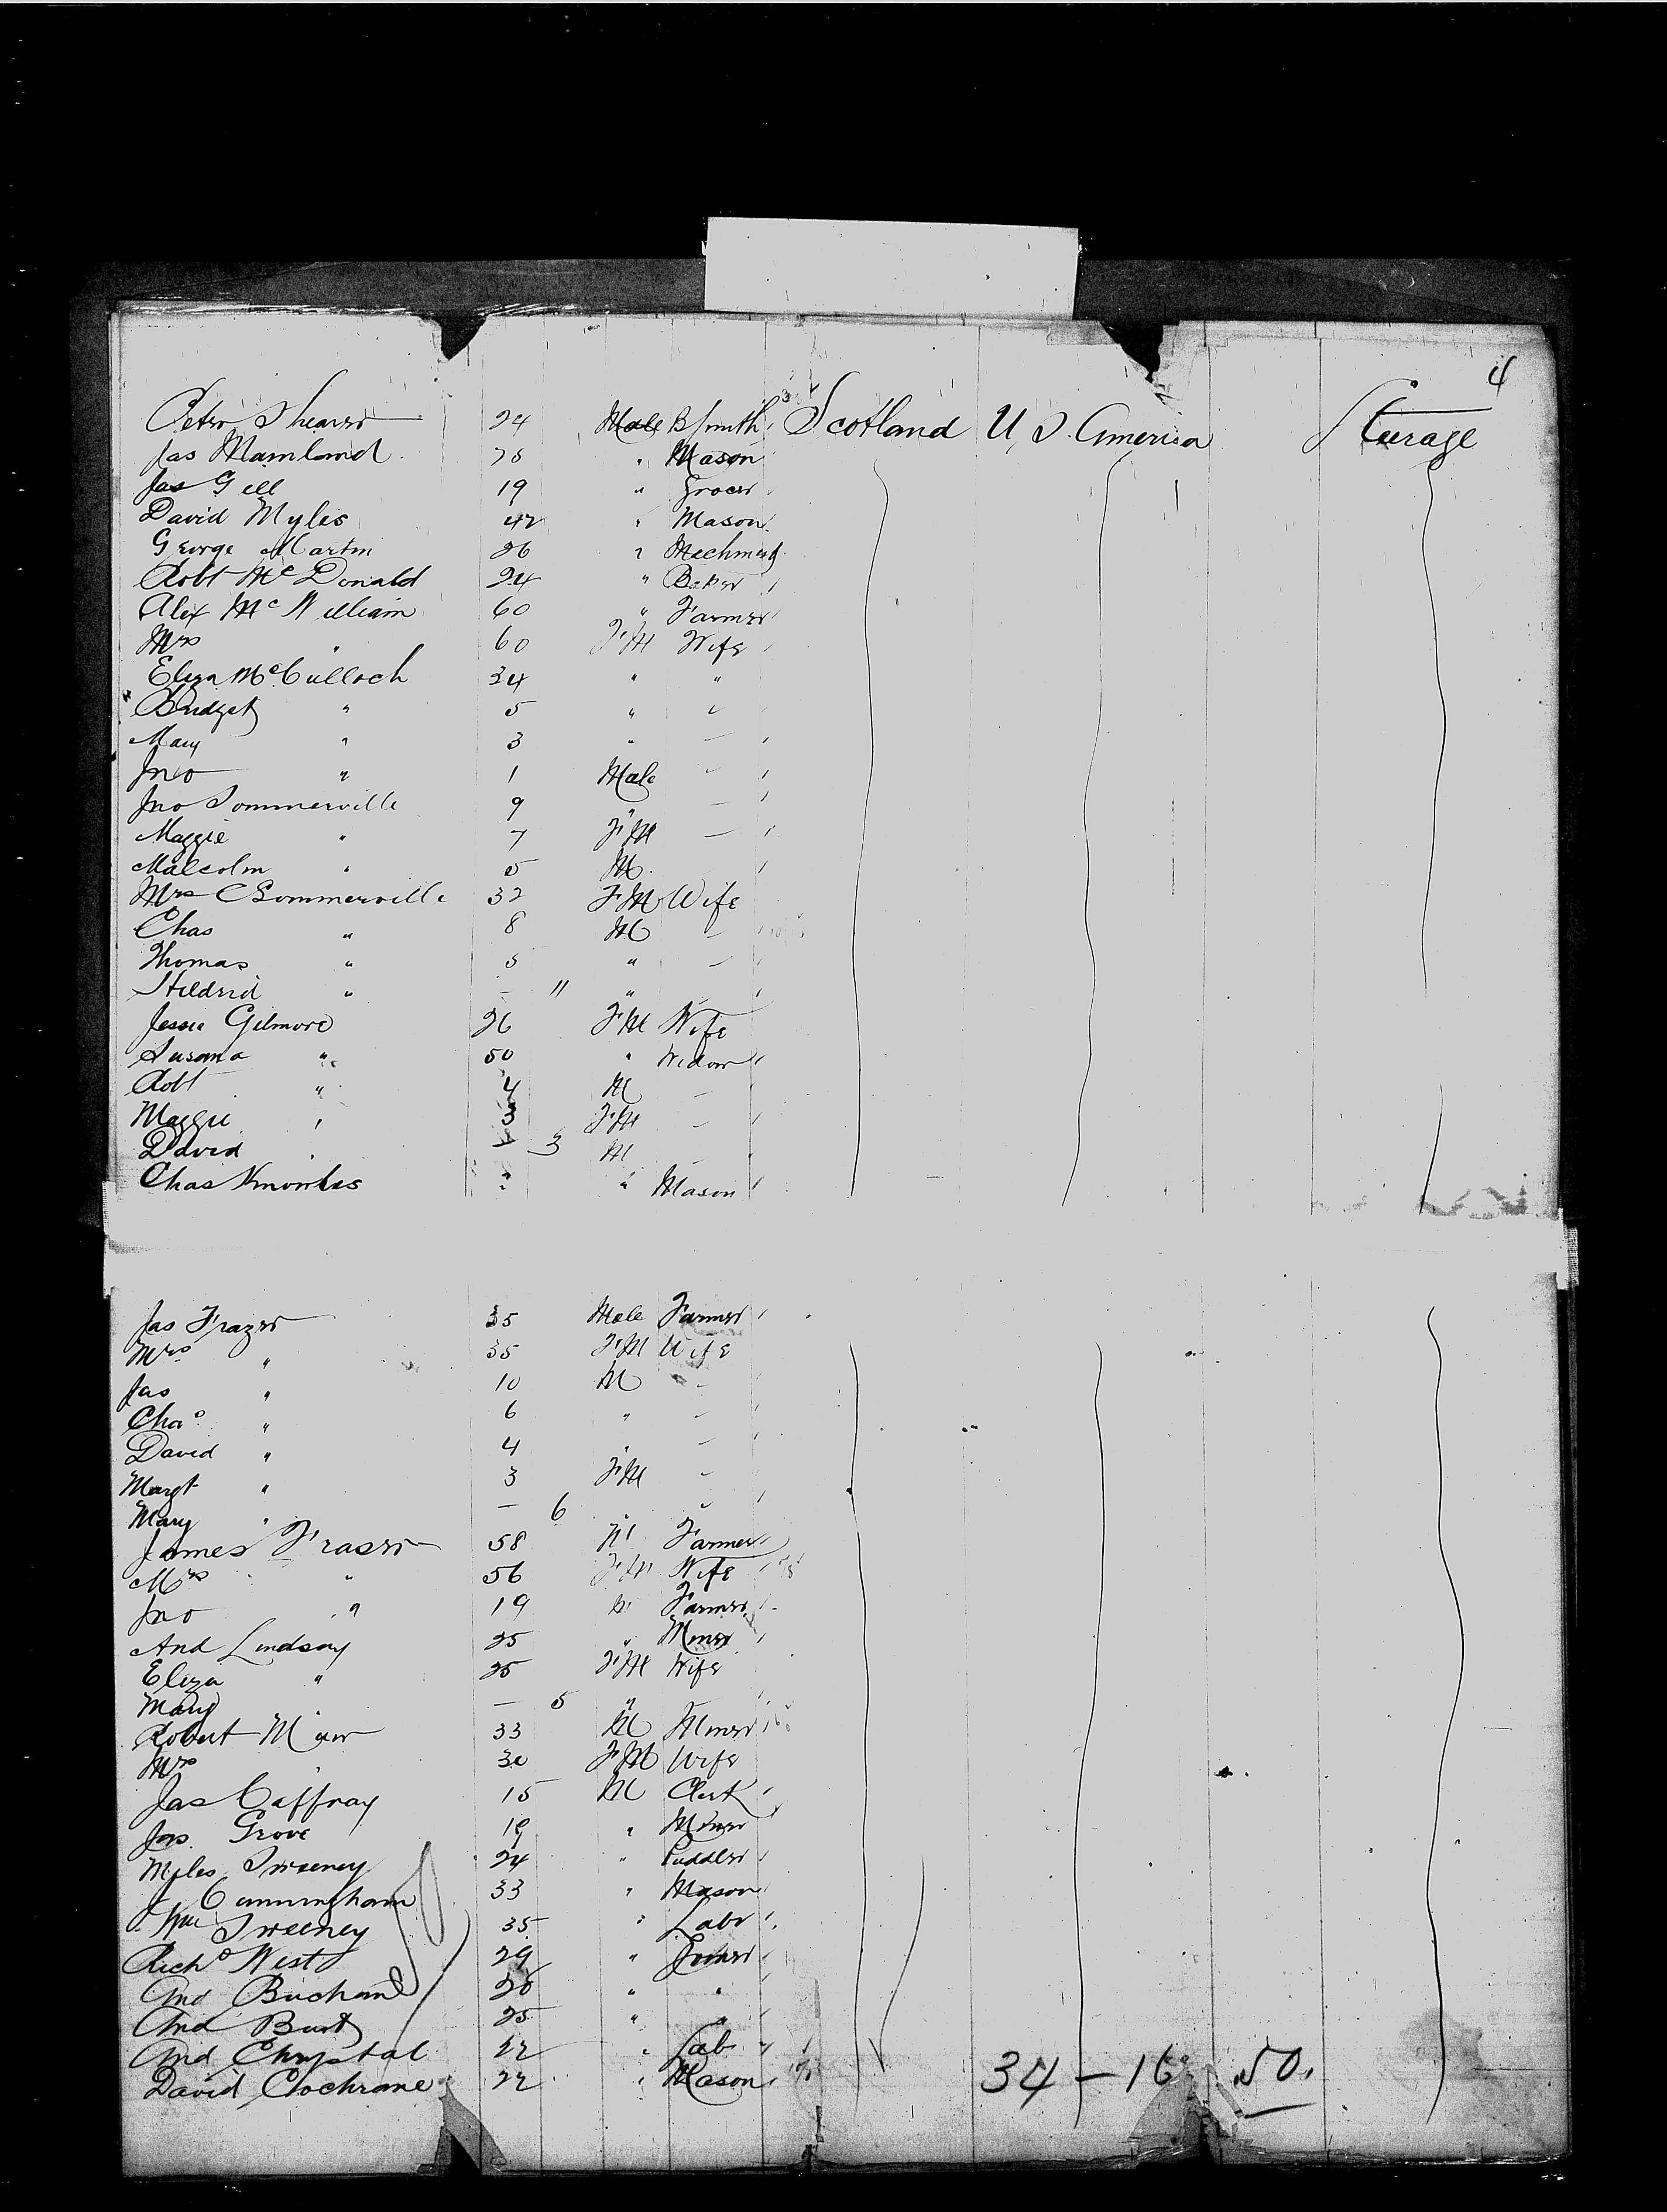 4
Peter Shearer 24 Male B Smith Scotland U, S. America Steerage
Jas Mainland 28 " Mason
Jas Gell 19 " Grocer
David Myles 42 " Mason
George Martin 26 "
Robt McDonald 24 " Baker
Alex McWilliam 60 " Farmer
Mrs " 60 FM Wife
Eliza McCulloch 34 " "
Bridget " 5 " "
Mary " 3 " —
Jno " 1 Male —
Jno Sommerville 9 " —
Maggie " 7 FM —
Malcolm " 5 M.
Mrs C Sommerville 32 FM Wife
Chas " 8 M —
Thomas " 5 " —
Hildrid " — 11 "
Jessie Gilmore 26 FM Wife
Susana " 50 " Widow
Robt " 4 M —
Maggie " 3 FM —
David " — 3 M —
Chas " Mason
Jas Frazer 35 Male Farmer
Mrs " 35 FM Wife
Jas " 10 M —
Chas " 6 " —
David " 4 " —
Margt " 3 FM —
Mary " — 6 " "
James Fraser 58 M Farmer
Mrs " 56 FM Wife
Jno " 19 M Farmer
And Lindsay 25 " Miner
Eliza " 25 FM Wife
Mary " — 5 "
Robert Muir 33 M Miner
Mrs " 30 FM Wife
Jas Caffray 15 M Clerk
Jas. Grove 19 " Miner
Myles Sweeney 24 " Puddler
J Cunningham 33 " Mason
Wm Sweeney 35 " Labr
Richd West 29 " Joiner
And Buchan 28 " "
And Burt 25 " "
And Chrystal 22 " Lab
David Cochrane 22 " Mason 34 — 16 50.